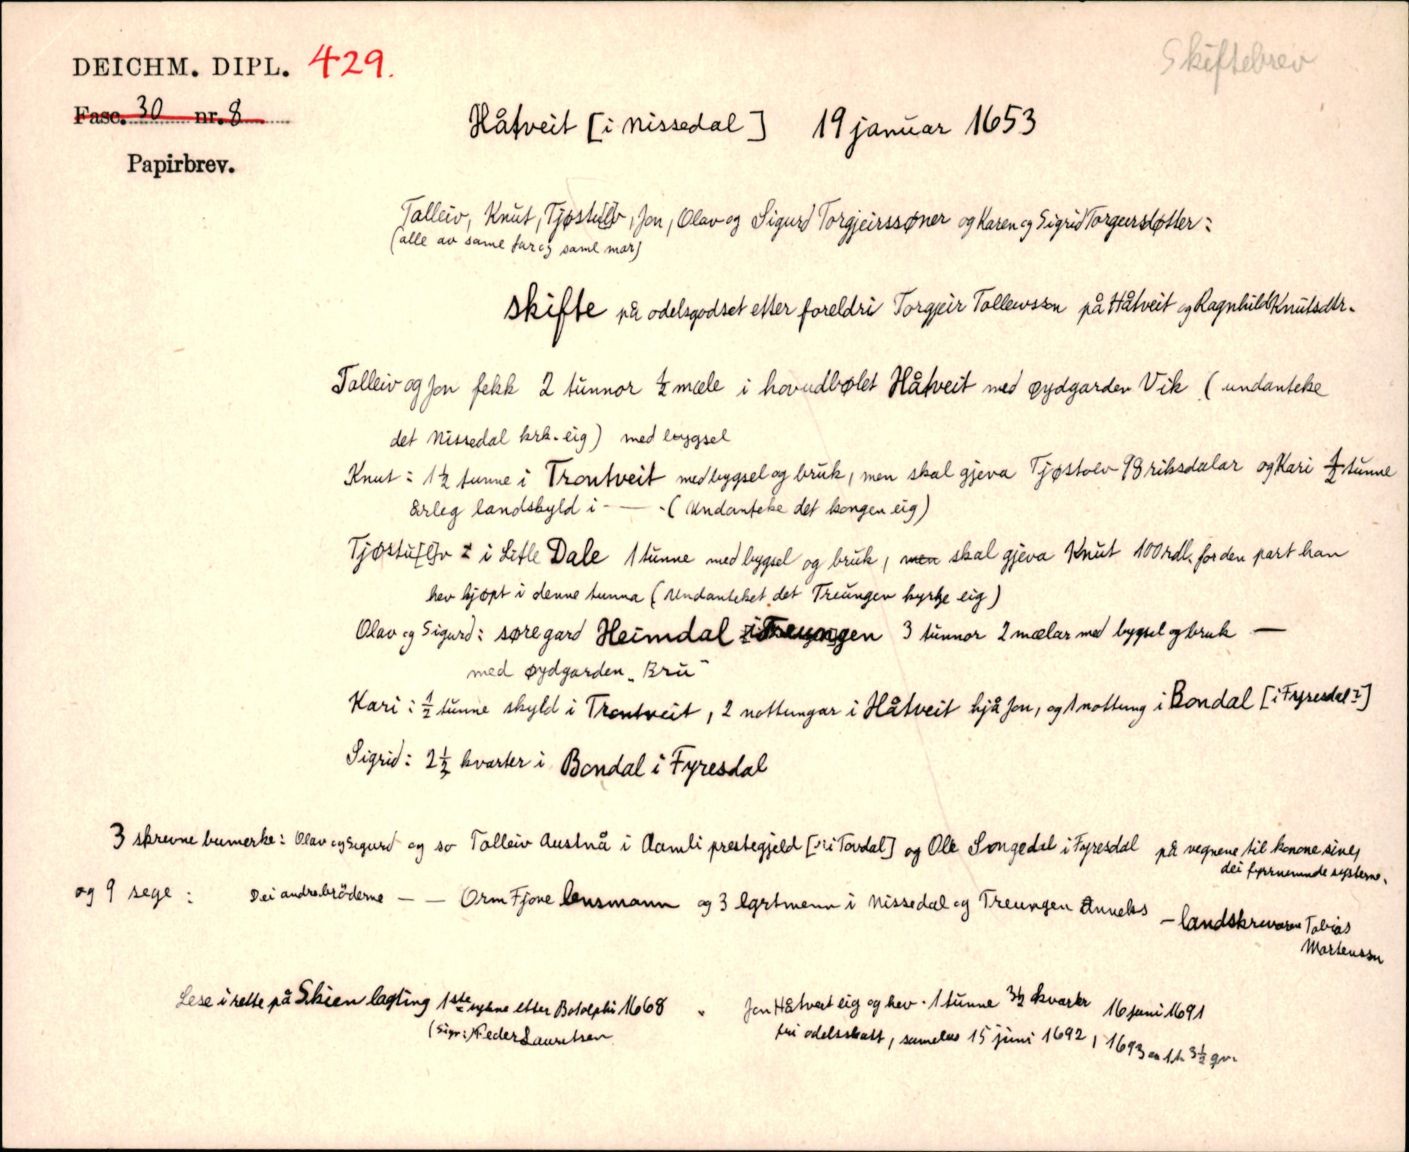 DEICHM. DIPL. 429.
Skiftebrev
Fasc. 30 nr. 8
Papirbrev.
Håtveit [i Nissedal] 19 januar 1653
Talleiv, Knut, Tjøstu[l]v, Jon, Olav og Sigurd Torgjeirssøner og Karen og Sigrid Torgeirsdøtter:
(alle av same far og same mor)
skifte på odelsgodset etter foreldri Torgjeir Tolleivsson på Håtveit og Ragnhild Knutsdtr.
Talleiv og Jon fekk 2 tunnor ½ mæle i hovudbølet Håtveit med øydgarden Vik (undanteke
det Nissedal krk. eig) med bygsel
Knut: 1½ tunne i Trontveit med bygsel og bruk, men skal gjeva Tjøstolv 98 riksdalar og Kari ½ tunne
årleg landskyld i - — - (Undanteke det kongen eig)
Tjøstu[l]v : i Litle Dale 1 tunne med bygsel og bruk, men skal gjeva Knut 100 rdl. for den part han
hev kjøpt i denne tunna (Undanteket det Treungen kyrkje eig)
Olav og Sigurd: søregard Heimdal i Treungen 3 tunnor 2 mælar med bygsel og bruk —
med øydgarden „Bru"
Kari: ½ tunne skyld i Trontveit, 2 nottungar i Håtveit hjå Jon, og 1 nottung i Bondal [i Fyresdal?]
Sigrid: 2½ kvarter i Bondal i Fyresdal
3 skrevne bumerke: Olav og Sigurd og so Tolleiv Austnå i Aamli prestegjeld [i Tovdal] og Ole Songedal i Fyresdal på vegnene til konone sine,
dei fyrrnemnde systerne.
og 9 segl: Dei andre brøderne — — Orm Fjone lensmann og 3 lagrtmenn i Nissedal og Treungen Anneks — landskrivaren Tobias
Mortensson
Lese i rette på Skien lagting 1ste sykne etter Botolphi 1668 . Jon Håtveit eig og hev 1 tunne 3½ kvarter 16 juni 1691
(Sign: Peder Lauretsen fri odelsskatt, sameleis 15 juni 1692, 1693 1 t. 3½ qv.